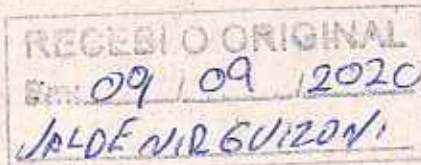 RECEBI O ORIGINAL
Em: 09 / 09 / 2020
VALDENIR GUIZONI